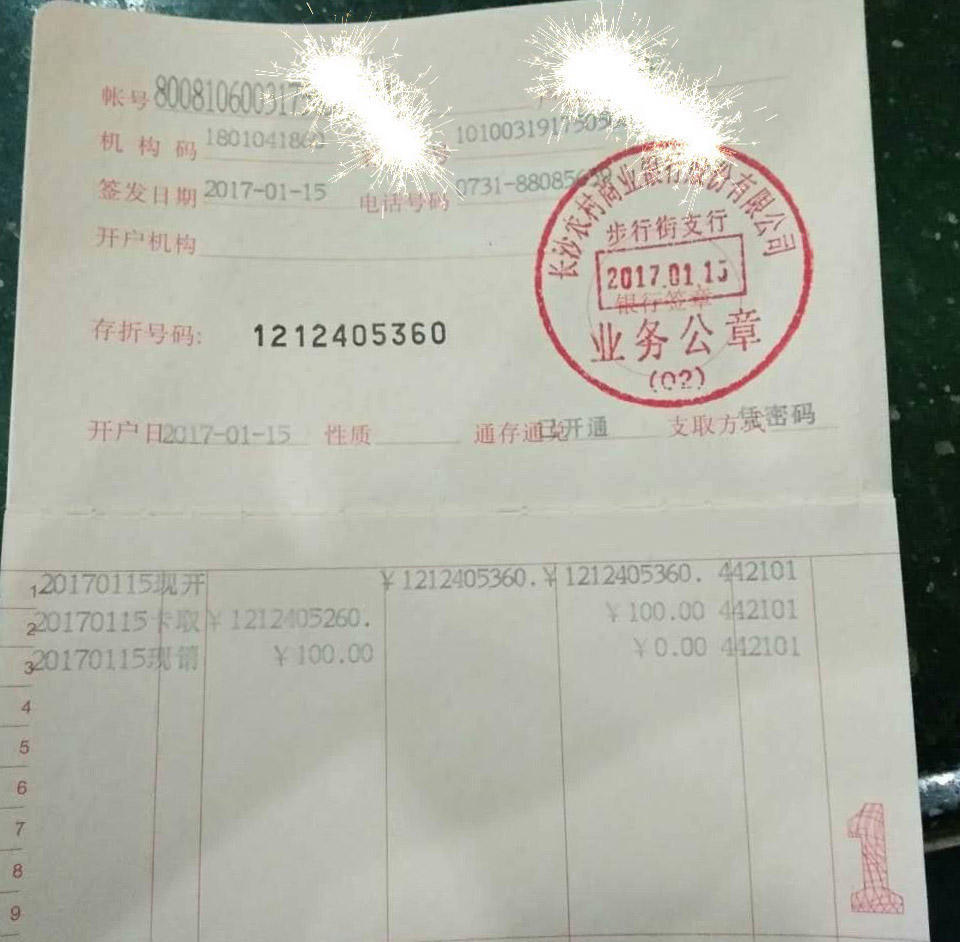 帐号 8008106003175
机构码 1801041860 号 1010031917505
签发日期 2017-01-15 电话号码 0731-88085
开户机构
长沙农村商业银行股份有限公司
步行街支行
2017.01.15
银行签章
业务公章
(02)
存折号码: 1212405360
开户日 2017-01-15 性质 通存通兑 已开通 支取方式 凭密码
1 20170115现开 ¥1212405360. ¥1212405360. 442101
2 20170115卡取 ¥1212405260. ¥100.00 442101
3 20170115现销 ¥100.00 ¥0.00 442101
4
5
6
7
8
9
1